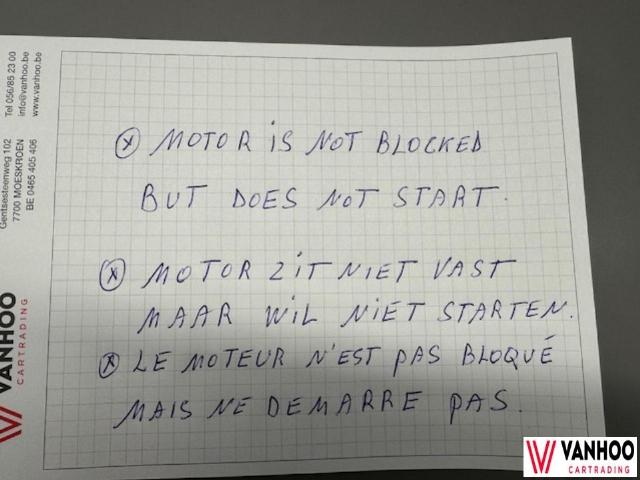 Tel 056/85 23 00
info@vanhoo.be
www.vanhoo.be
Gentsesteenweg 102
7700 MOESKROEN
BE 0465 405 406
VANHOO
CARTRADING
ⓧ MOTOR iS NOT BLOCKED
BUT DOES NOT START.
ⓧ MOTOR ZiT NIET VAST
MAAR WIL NIET STARTEN.
ⓧ LE MOTEUR N'EST PAS BLOQUÉ
MAIS NE DEMARRE PAS.
VANHOO
CARTRADING